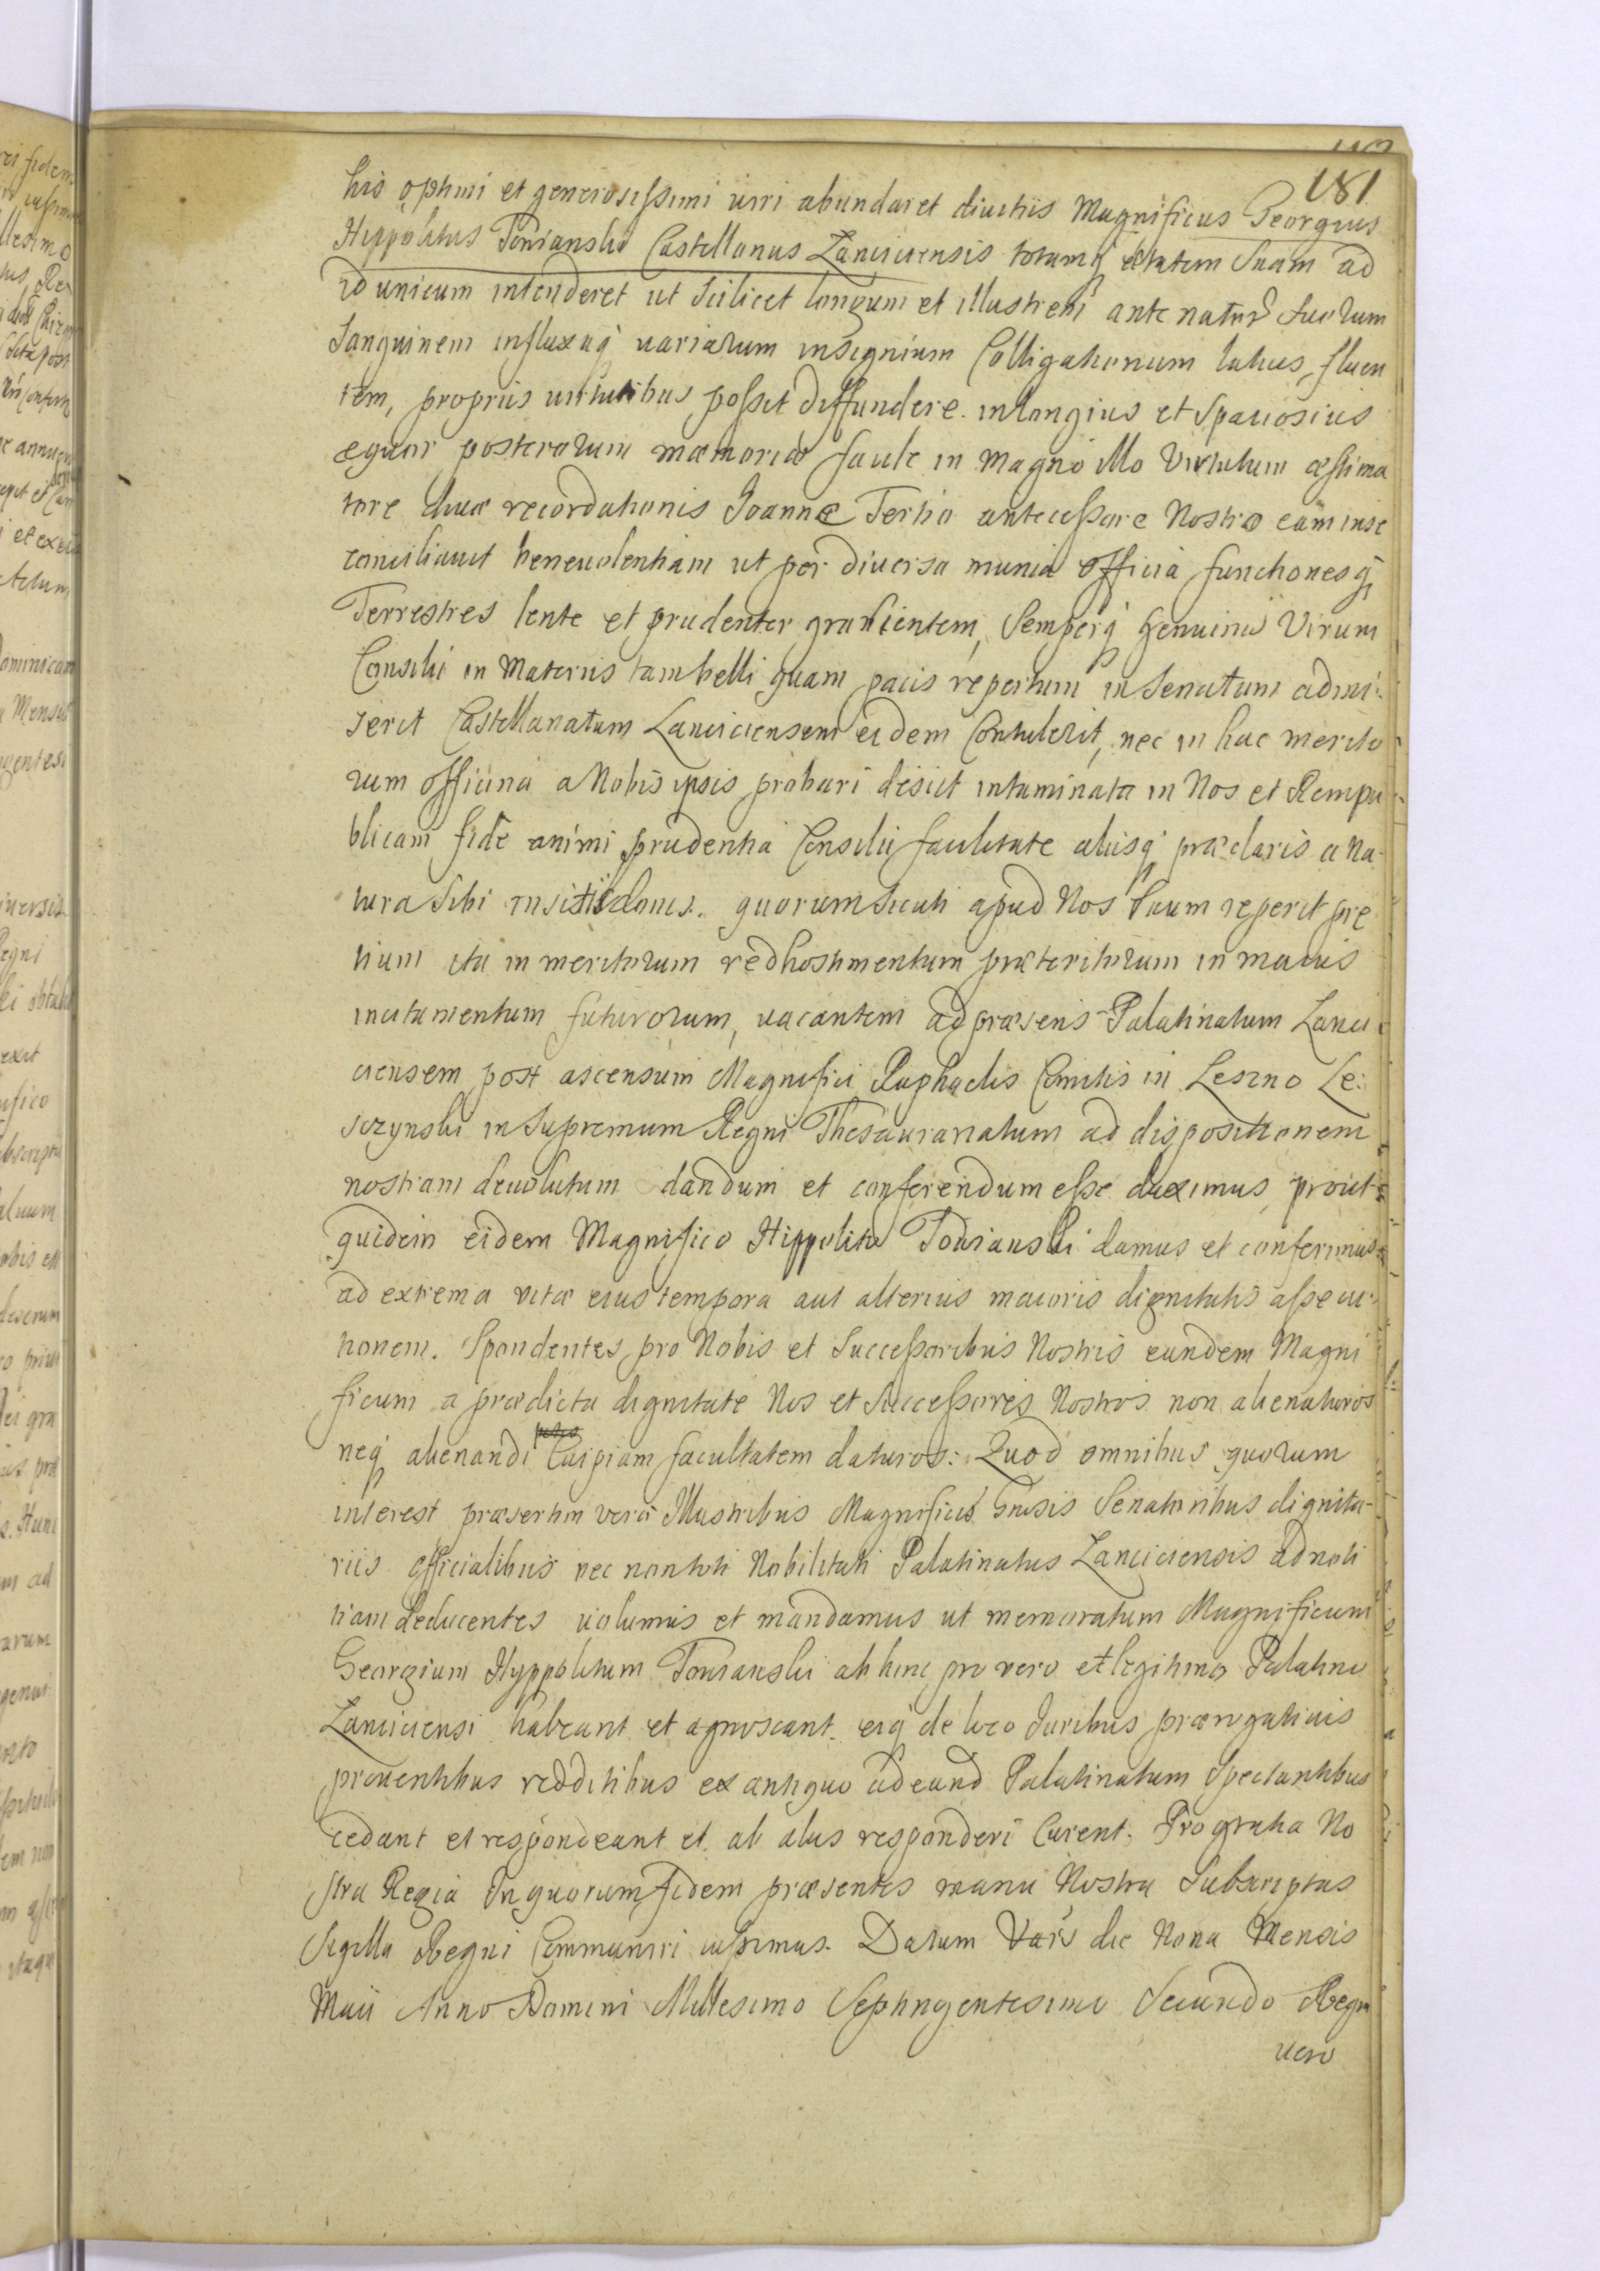 181
his optimi et generosissimi viri abundaret divitiis Magnificus Georgius
Hippolitus Towianski Castellanus Lanciciensis totamq ætatem suam ad
id unicum intenderet ut scilicet longum et illustrem ante natorũ suorum
sanguinem influxuq variarum insignium Colligationum latius fluen
tem, propriis virtutibus possit diffundere in longius et spatiosius
æquor posterorum mæmoriæ facile in magno illo Virtutum æstima
tore divæ recordationis Joanne Tertio antecessore Nostro eam in se
conciliavit benevolentiam ut per diversa munia officia functionesq
Terrestres lente et prudenter gradientem, semperq genuinũ Virum
Consilii in Materiis tam belli quam pacis repertum in Senatum admi-
serit Castellanatum Lanciciensem eidem Contulerit, nec in hac merito
rum officina a Nobis ipsis probari desiit intaminata in Nos et Rempu
blicam fide animi prudentia Consilii facilitate aliisq præclaris a Na-
tura sibi insitis donis. quorum sicuti apud Nos suum reperit pre
tium ita in meritorum redhostimentum præteritorum in maius
incitamentum futurorum, vacantem ad præsens Palatinatum Lanci
ciensem post ascensum Magnifici Raphaelis Comitis in Leszno Le:
sczynski in Supremum Regni Thesaurariatum ad dispositionem
nostram devolutum dandum et conferendum esse duximus, prout
quidem eidem Magnifico Hippolito Towianski damus et conferimus
ad extrema vitæ eius tempora aut alterius maioris dignitatis assecu-
tionem. Spondentes pro Nobis et Successoribus Nostris eundem Magni
ficum a prædicta dignitate Nos et Successores Nostros non alienaturos
neq alienandi Cuipiam facultatem daturos: Quod omnibus quorum
interest præsertim vero Illustribus Magnificis Gnsis Senatoribus dignita-
riis officialibus nec non toti Nobilitati Palatinatus Lanciciensis ad noti
tiam deducentes volumus et mandamus ut memoratum Magnificum
Georgium Hyppolitum Towianski ab hinc pro vero et legitimo Palatino
Lanciciensi habeant et agnoscant. eiq de loco Juribus prærogativis
proventibus redditibus ex antiquo ad eund Palatinatum Spectantibus
cedant et respondeant et ab aliis responderi Curent. Pro gratia No
stra Regia In quorum fidem præsentes manu Nostra Subscriptas
Sigillo Regni Communiri iussimus. Datum Vars die Nona Mensis
Maii Anno Domini Millesimo Septingentesimo Secundo Regni
vero